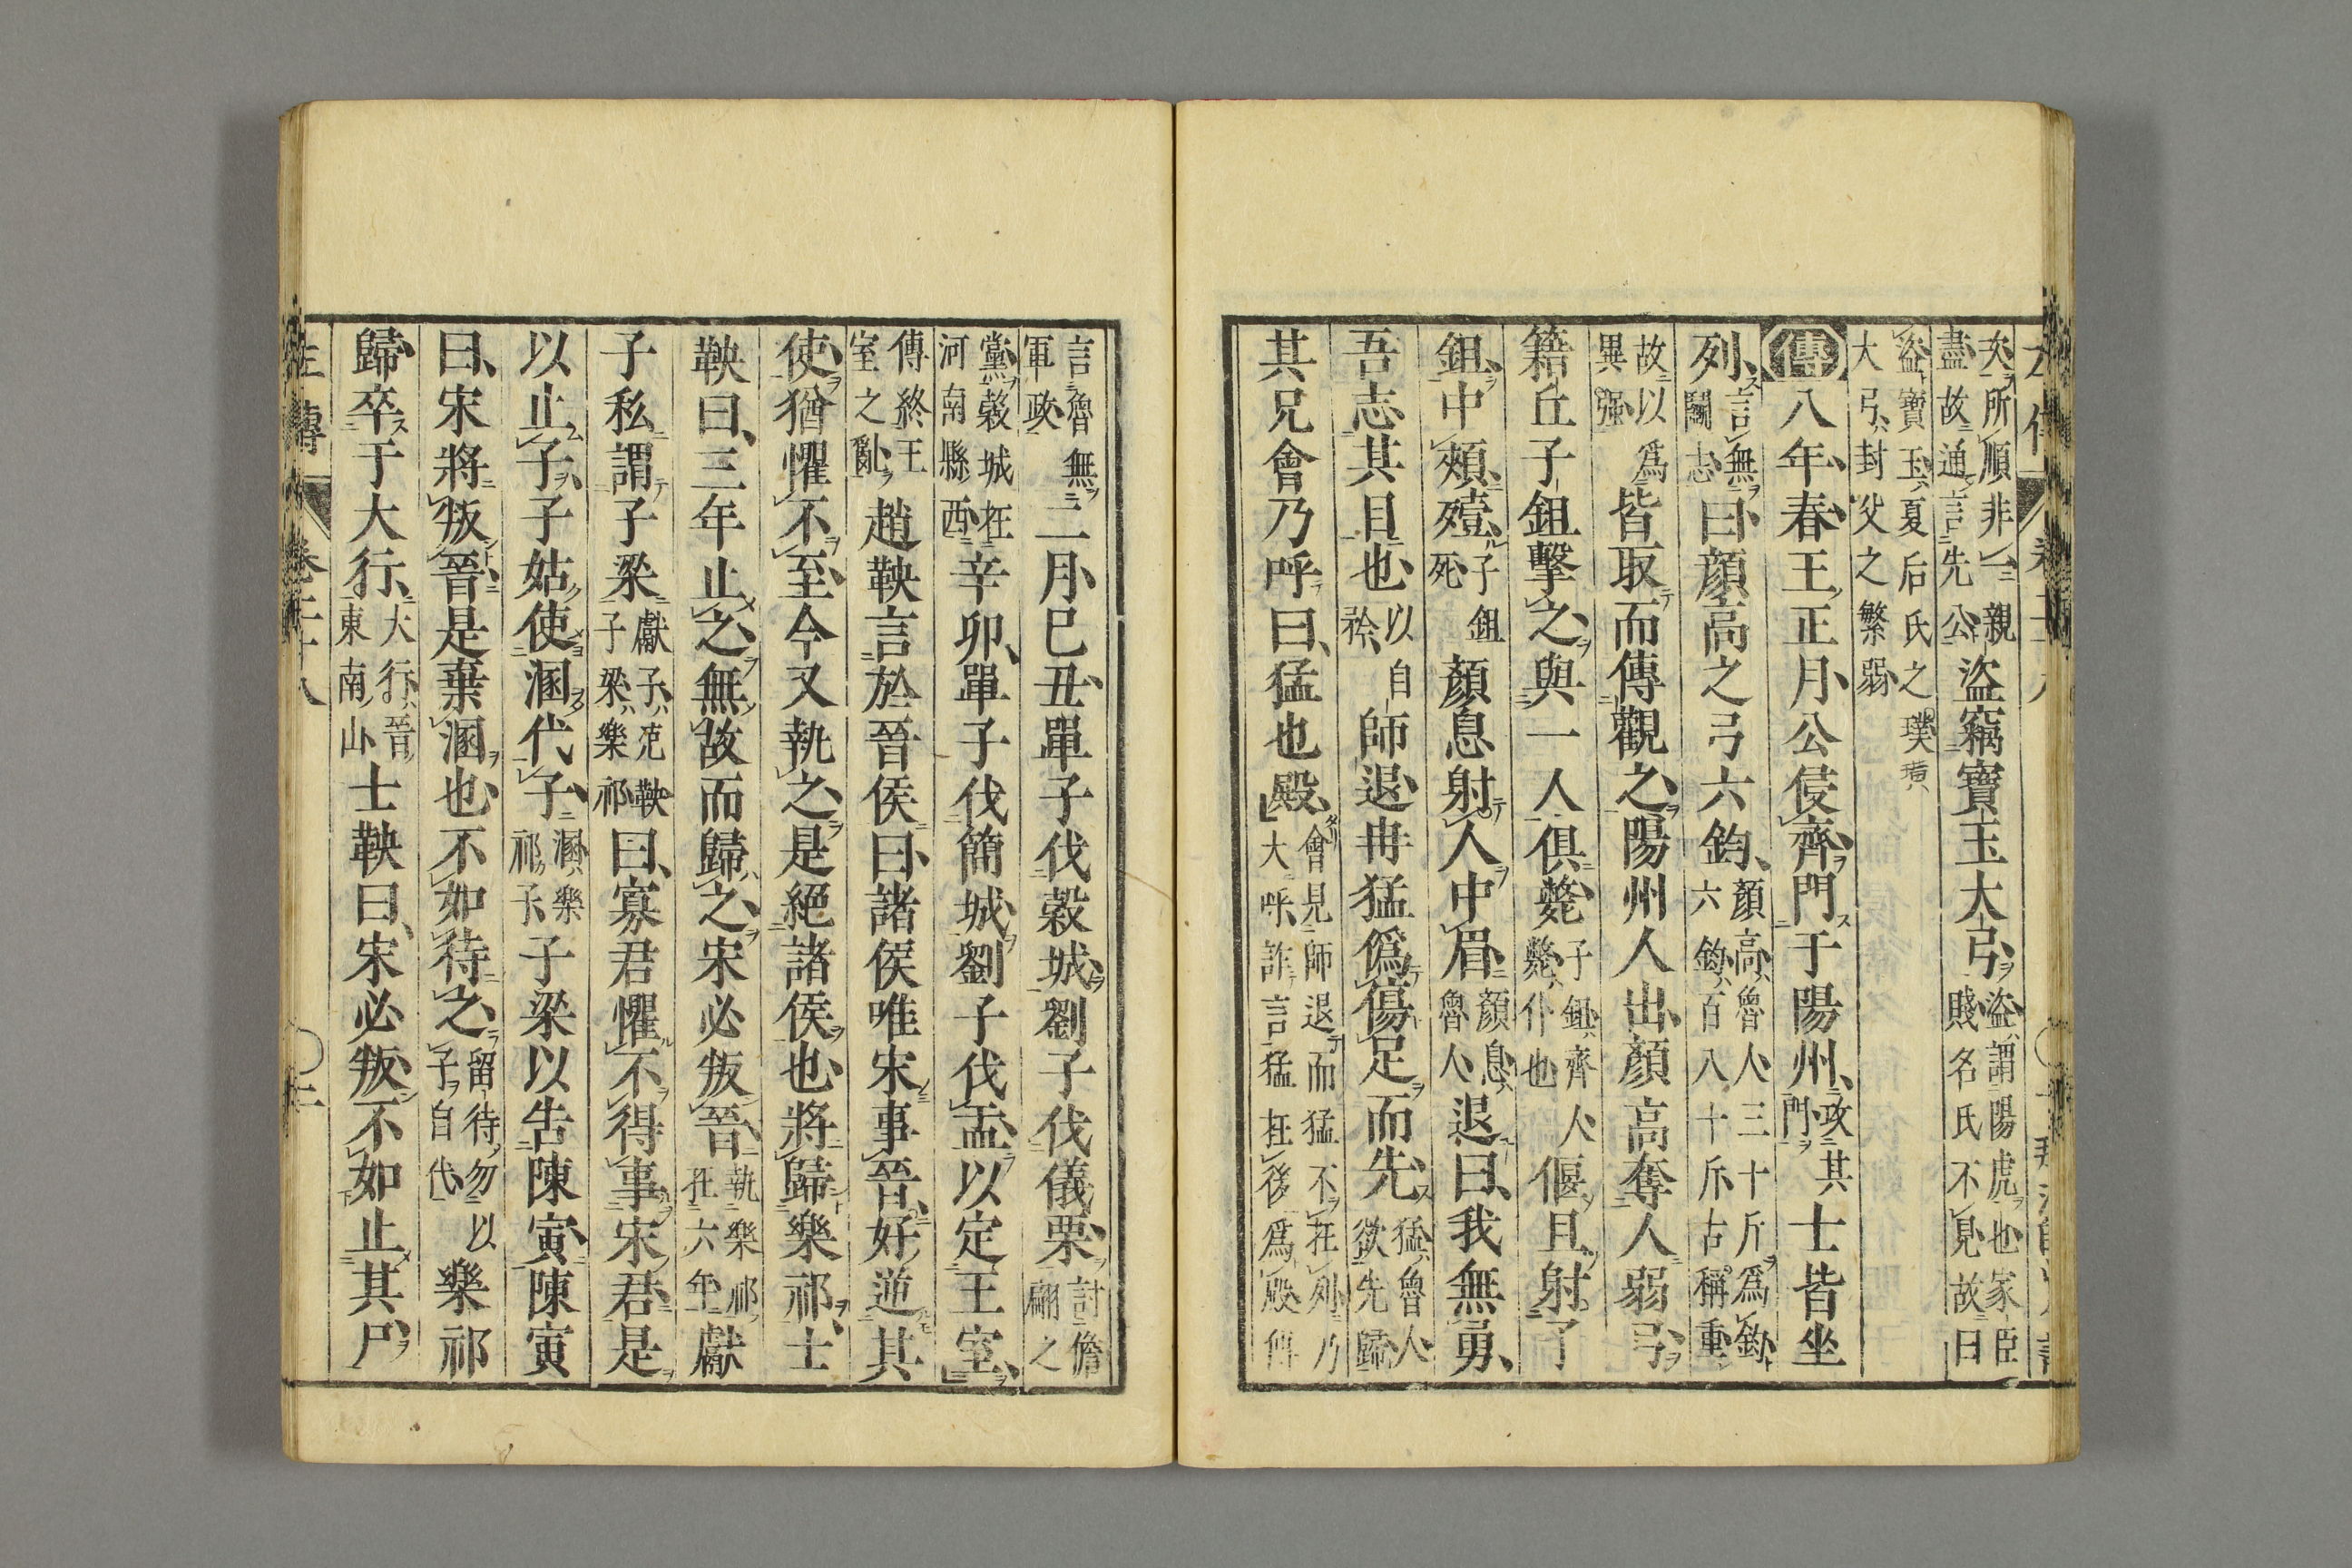 次所順非一親
盡故通言先公
盜竊寶玉大弓
盜謂陽虎也家臣
賤名氏不見故曰
盜寶玉夏后氏之璞璜
大弓封父之繁弱
傳八年春王正月公侵齊門于陽州
攻其
門
士皆坐
列
言無
鬭志
曰顏高之弓六鈞
顏高魯人三十斤爲鈞
六鈞百八十斤古稱重
故以爲
異强
皆取而傳觀之陽州人出顏高奪人弱弓
籍丘子鉏擊之與一人俱斃
子鉏齊人
斃仆也
偃且射子
鉏中頰殪
子鉏
死
顏息射人中眉
顏息
魯人
退曰我無勇
吾志其目也
以自
矜
師退冉猛僞傷足而先
猛魯人
欲先歸
其兄會乃呼曰猛也殿
會見師退而猛不在列乃
大呼詐言猛在後爲殿傳
言魯無
軍政
二月己丑單子伐穀城劉子伐儀栗
討儋
翩之
黨穀城在
河南縣西
辛卯單子伐簡城劉子伐盂以定王室
傳終王
室之亂
趙鞅言於晉侯曰諸侯唯宋事晉好逆其
使猶懼不至今又執之是絕諸侯也將歸樂祁士
鞅曰三年止之無故而歸之宋必叛晉
執樂祁
在六年
獻
子私謂子梁
獻子范鞅
子梁樂祁
曰寡君懼不得事宋君是
以止子子姑使溷代子
溷樂
祁子
子梁以告陳寅陳寅
曰宋將叛晉是棄溷也不如待之
留待勿以
子自代
樂祁
歸卒于大行
大行晉
東南山
士鞅曰宋必叛不如止其尸
左傳
卷二十八
二